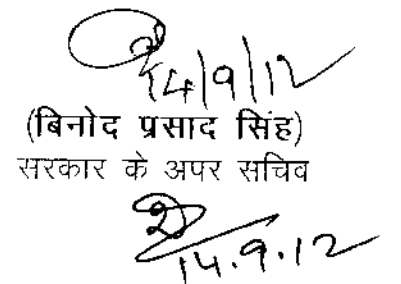 14/9/12
(बिनोद प्रसाद सिंह)
सरकार के अपर सचिव
14.9.12